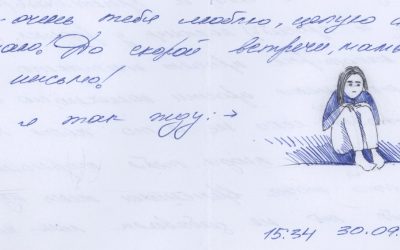 очень тебя люблю, целую и
До скорой встречи, мамы
письмо!
я так жду: →
15.34 30.09.